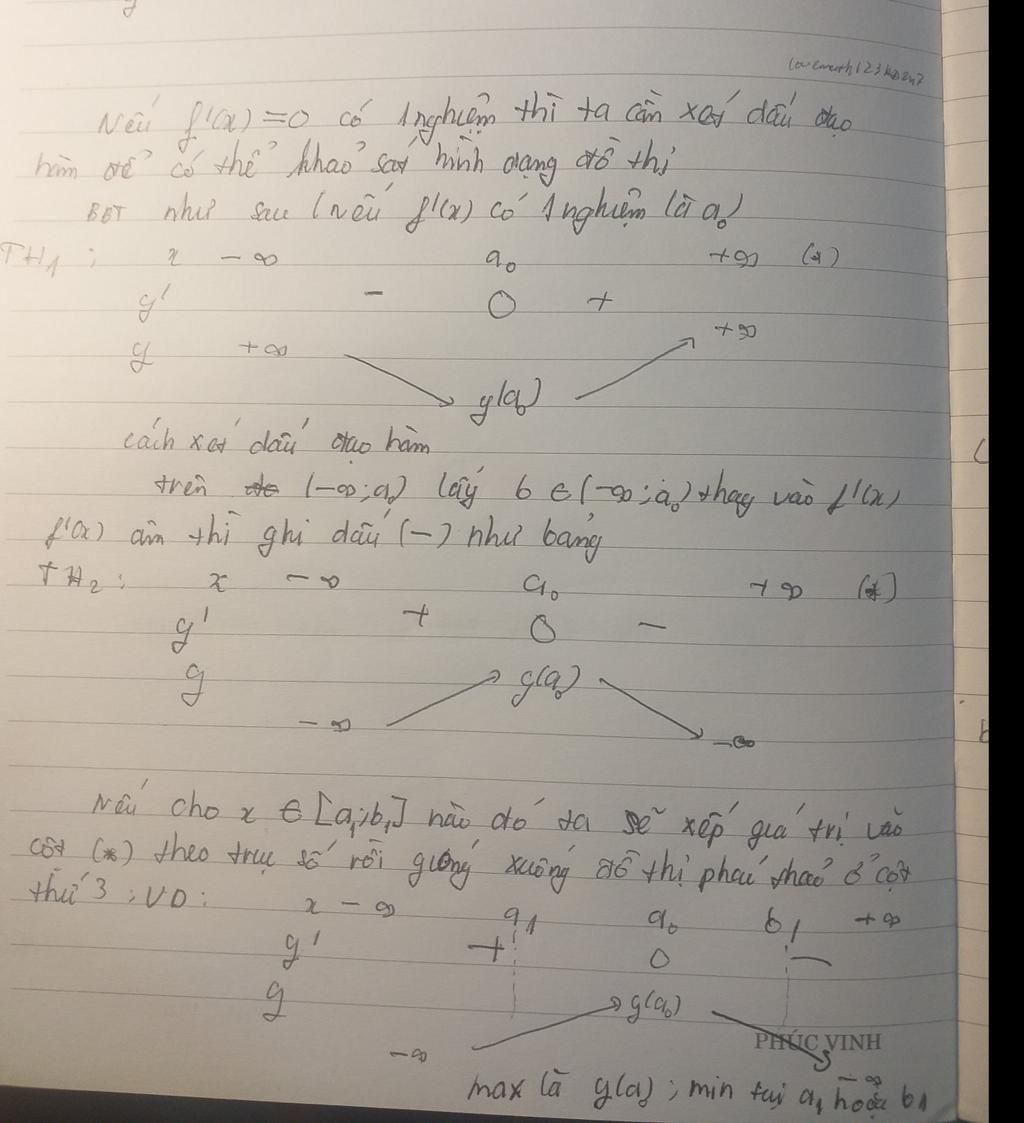 Nếu f'(x)=0 có 1 nghiệm thì ta cần xét dấu đạo
hàm để có thể khảo sát hình dạng đồ thị
BBT như sau (nếu f'(x) có 1 nghiệm là a₀)
TH₁: x -∞ a₀ +∞ (*)
y' - 0 +
y +∞ y(a₀) +∞
cách xét dấu đạo hàm
trên (-∞;a₀) lấy b ∈ (-∞;a₀) thay vào f'(x)
f'(x) âm thì ghi dấu (-) như bảng
TH₂: x -∞ a₀ +∞ (*)
y' + 0 -
y y(a₀)
-∞ -∞
Nếu cho x ∈ [a₁;b₁] nào đó ta sẽ xếp giá trị vào
cột (*) theo trục số rồi gióng xuống đồ thị phác thảo ở cột
thứ 3; VD: x -∞ a₁ a₀ b₁ +∞
y' + 0 -
y y(a₀)
PHÚC VINH
-∞ -∞
max là y(a₀); min tại a₁ hoặc b₁